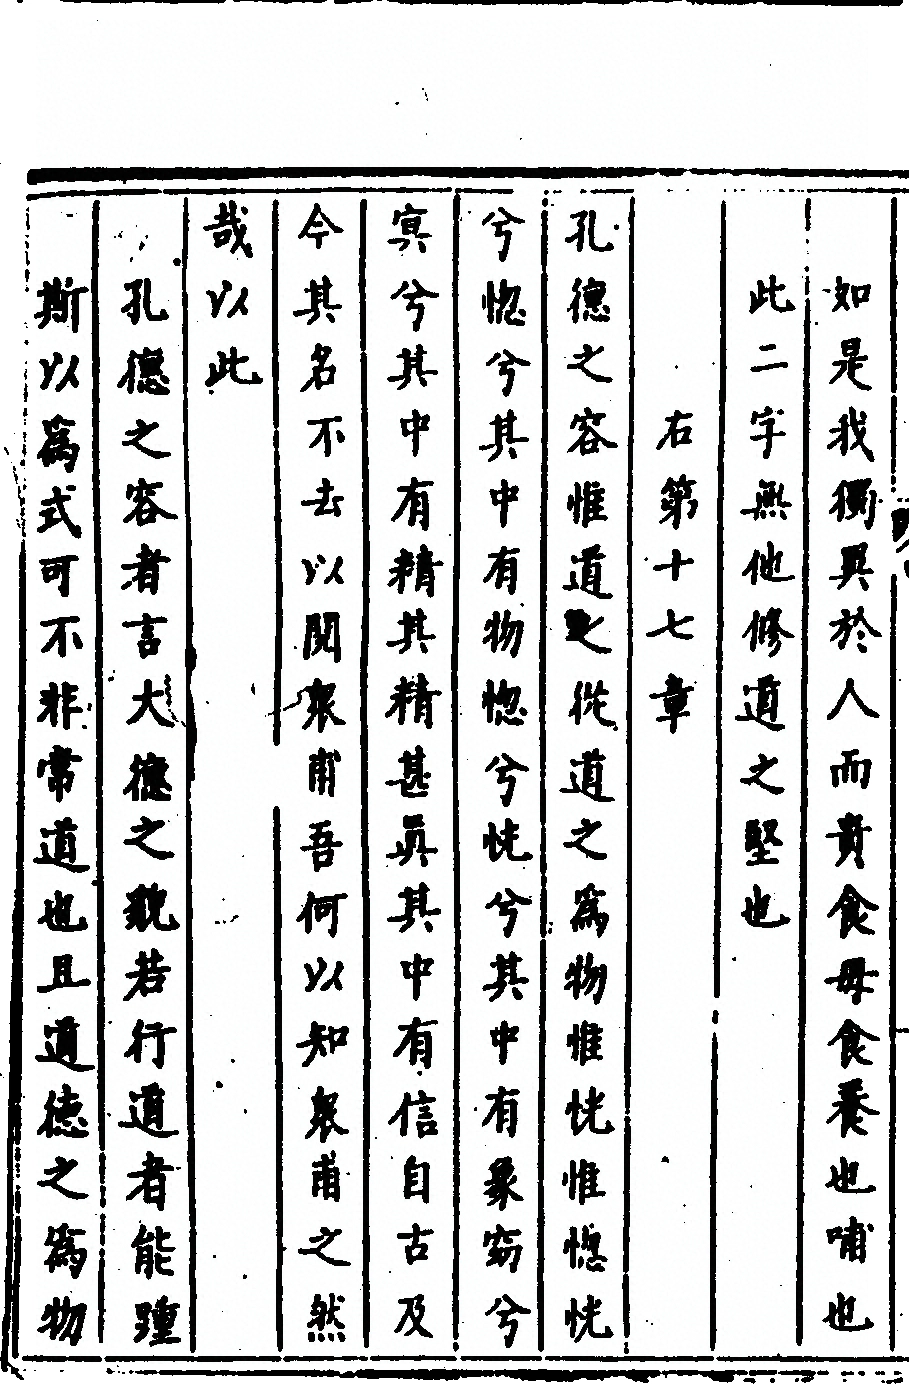 如是我獨異於人而貴食母食養也哺也
此二字無他修道之堅也
右第十七章
孔德之容惟道之從道之為物惟恍惟惚恍
兮惚兮其中有物惚兮恍兮其中有象窈兮
寘兮其中有精其精甚真其中有信自古及
今其名不去以閱眾甫吾何以知眾甫之然
哉以此
孔德之容者言大德之貌若行道者能踵
斯以為式可不非常道也且道德之為物